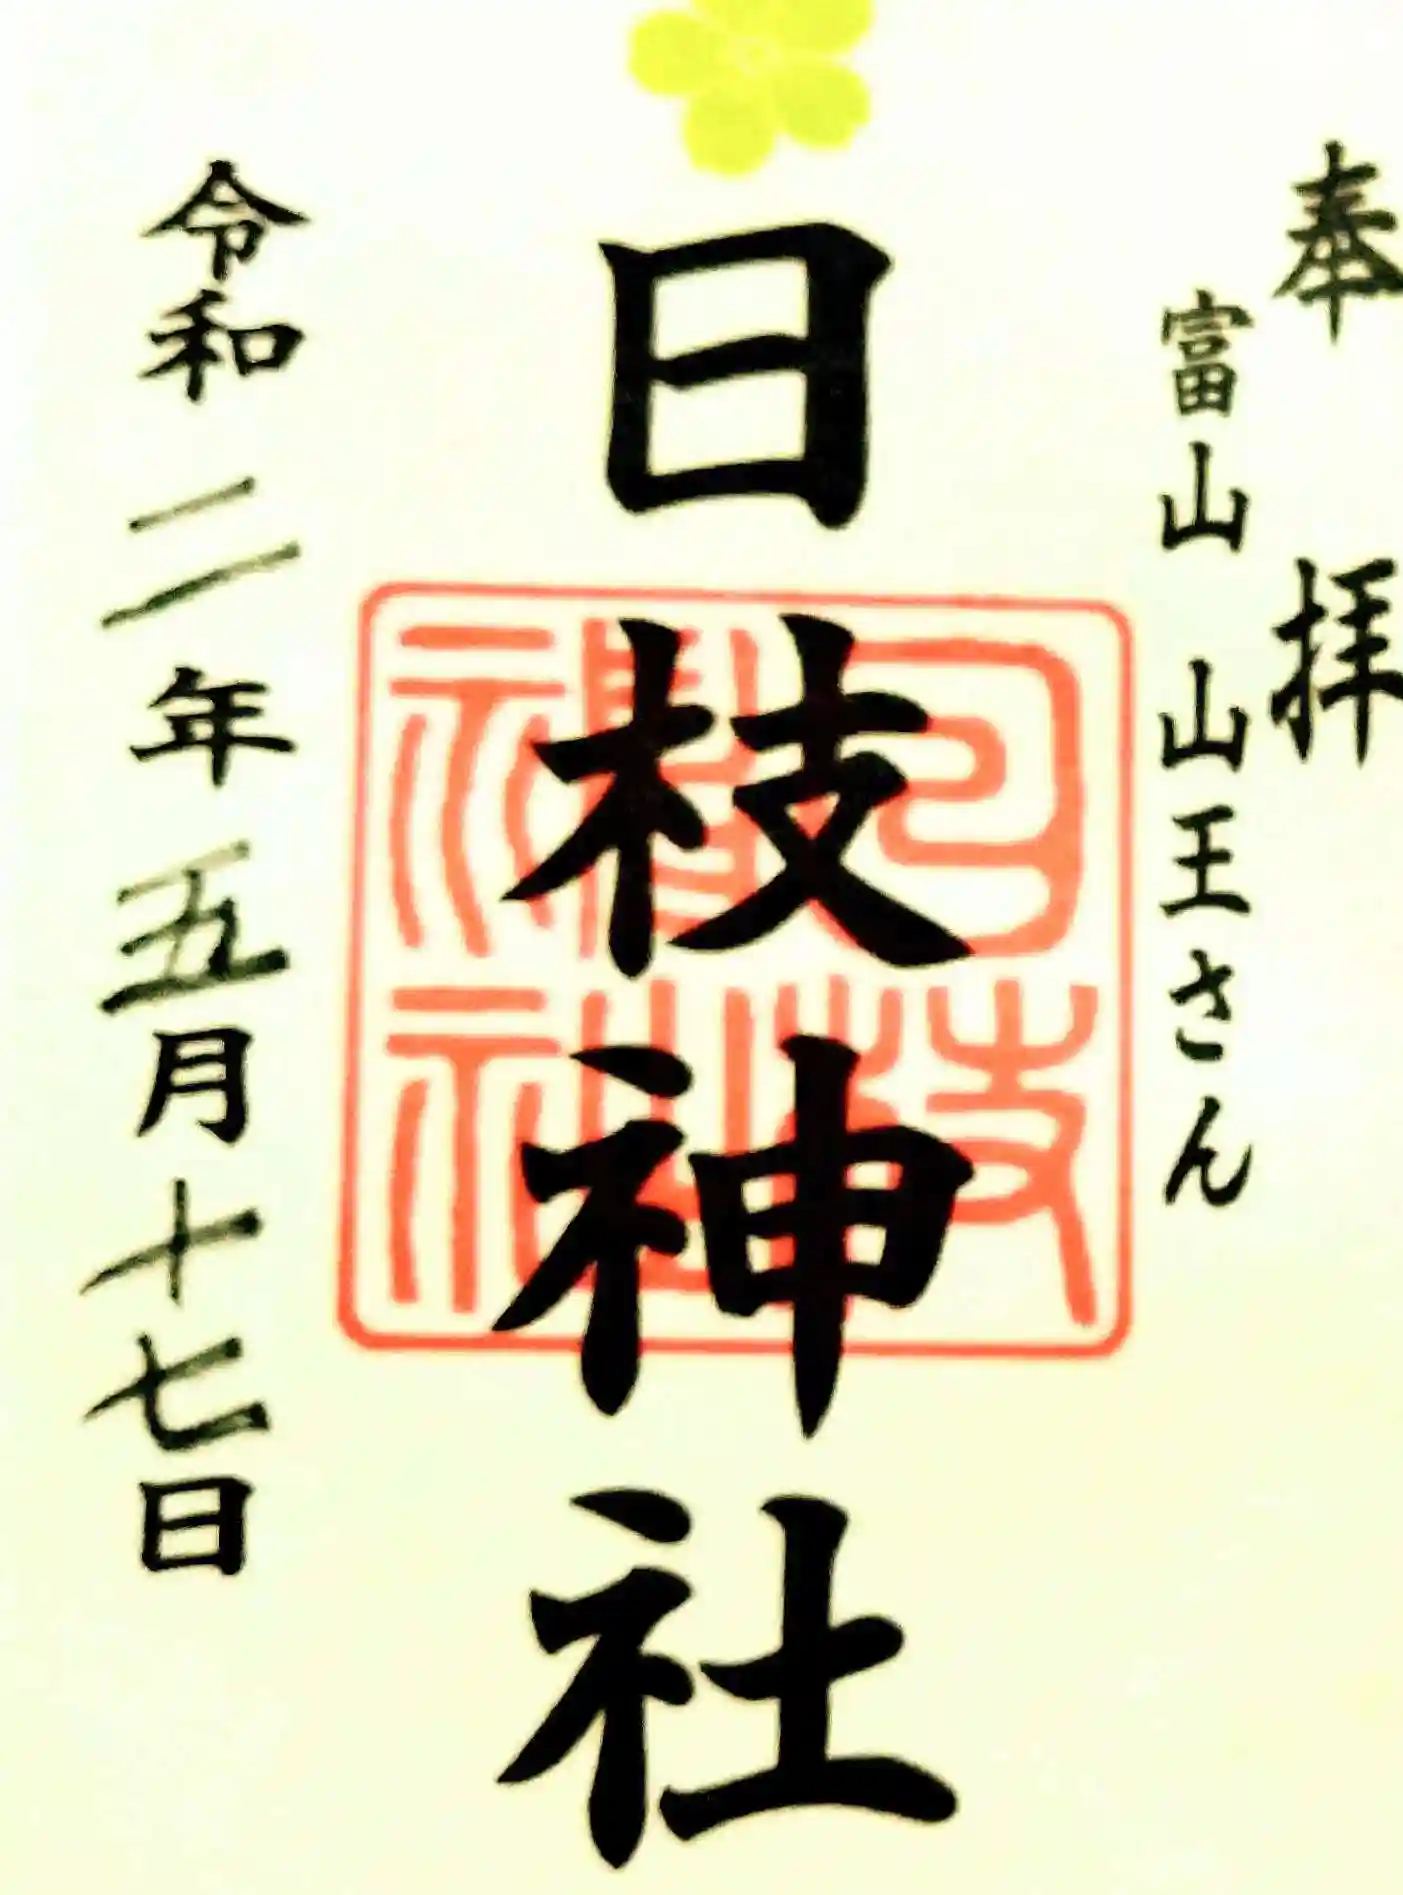 奉拝
富山 山王さん
日枝神社
日枝神社
令和二年五月十七日